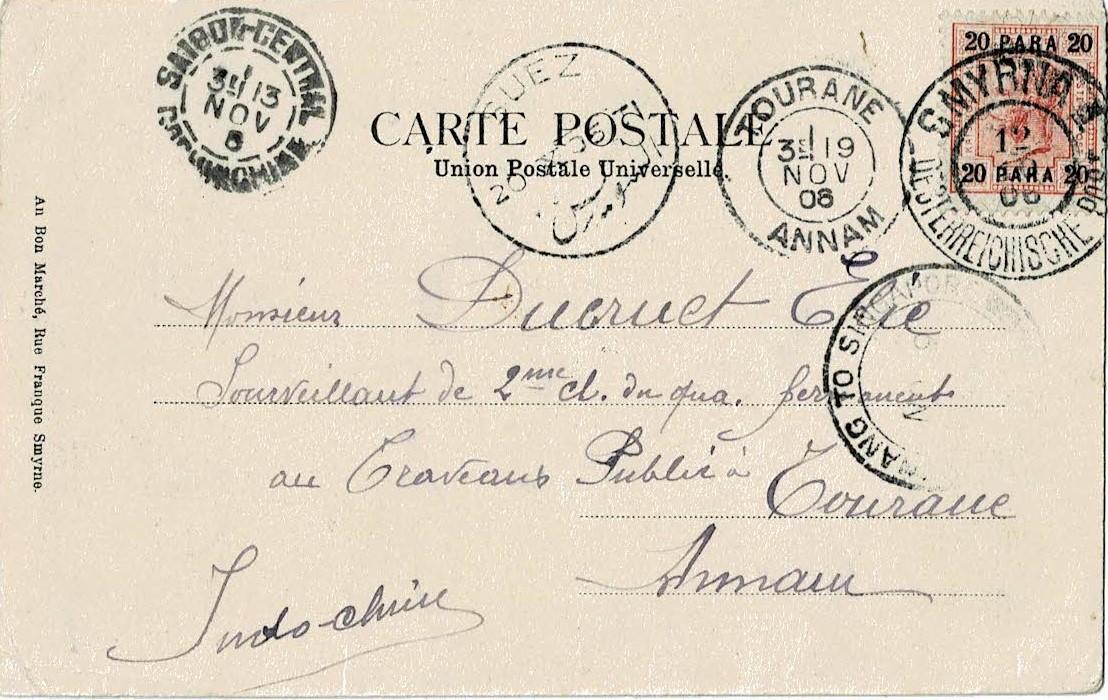 SAIGON-CENTRAL
3E 13
NOV
COCHINCHINE
SUEZ
السويس
CARTE POSTALE
Union Postale Universelle
TOURANE
3E 19
NOV
06
ANNAM
20 PARA 20
20 PARA 20
SMYRNA
12
06
OESTERREICHISCHE POST
NANG TO SINGAPORE
An Bon Marché, Rue Franque Smyrne.
Monsieur Ducruet Élie
Sourveillant de 2me cl. du qua. fermanents
au Traveaux Public à Tourane
Annam
Indo-chine